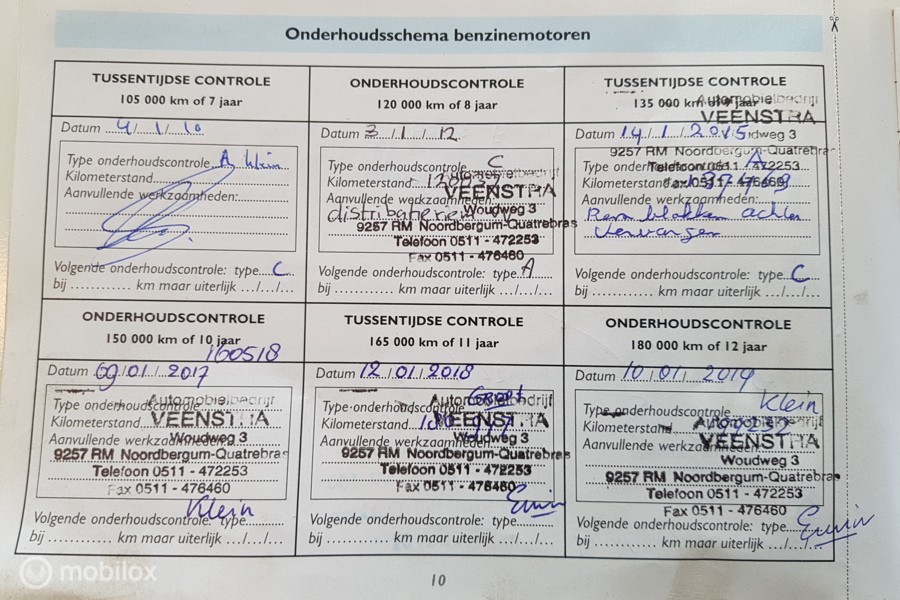 Onderhoudsschema benzinemotoren
TUSSENTIJDSE CONTROLE
105 000 km of 7 jaar
Datum 4/1/10
Type onderhoudscontrole A klein
Kilometerstand
Aanvullende werkzaamheden:
Volgende onderhoudscontrole: type C
bij ............ km maar uiterlijk .../.../...
ONDERHOUDSCONTROLE
120 000 km of 8 jaar
Datum 3/1/12
Type onderhoudscontrole C
Kilometerstand
Aanvullende werkzaamheden:
Automobielbedrijf
VEENSTRA
Woudweg 3
9257 RM Noordbergum-Quatrebras
Telefoon 0511 - 472253
Fax 0511 - 476460
Volgende onderhoudscontrole: type A
bij ............ km maar uiterlijk .../.../...
TUSSENTIJDSE CONTROLE
135 000 km of 9 jaar
Automobielbedrijf
VEENSTRA
Datum 14/1/2015
Woudweg 3
9257 RM Noordbergum-Quatrebras
Type onderhoudscontrole A
Telefoon 0511 - 472253
Kilometerstand
Fax 0511 - 476460
Aanvullende werkzaamheden:
Remblokken achter
vervangen
Volgende onderhoudscontrole: type C
bij ............ km maar uiterlijk .../.../...
ONDERHOUDSCONTROLE
150 000 km of 10 jaar
160518
Datum 09/01/2017
Type onderhoudscontrole
Kilometerstand
Aanvullende werkzaamheden:
Automobielbedrijf
VEENSTRA
Woudweg 3
9257 RM Noordbergum-Quatrebras
Telefoon 0511 - 472253
Fax 0511 - 476460
Klein
Volgende onderhoudscontrole: type
bij ............ km maar uiterlijk .../.../...
TUSSENTIJDSE CONTROLE
165 000 km of 11 jaar
Datum 12/01/2018
Type onderhoudscontrole Groot
Kilometerstand
Aanvullende werkzaamheden:
Automobielbedrijf
VEENSTRA
Woudweg 3
9257 RM Noordbergum-Quatrebras
Telefoon 0511 - 472253
Fax 0511 - 476460
Erwin
Volgende onderhoudscontrole: type
bij ............ km maar uiterlijk .../.../...
ONDERHOUDSCONTROLE
180 000 km of 12 jaar
Datum 10/01/2019
Type onderhoudscontrole Klein
Kilometerstand
Aanvullende werkzaamheden:
Automobielbedrijf
VEENSTRA
Woudweg 3
9257 RM Noordbergum-Quatrebras
Telefoon 0511 - 472253
Fax 0511 - 476460
Volgende onderhoudscontrole: type Erwin
bij ............ km maar uiterlijk .../.../...
10
mobilox